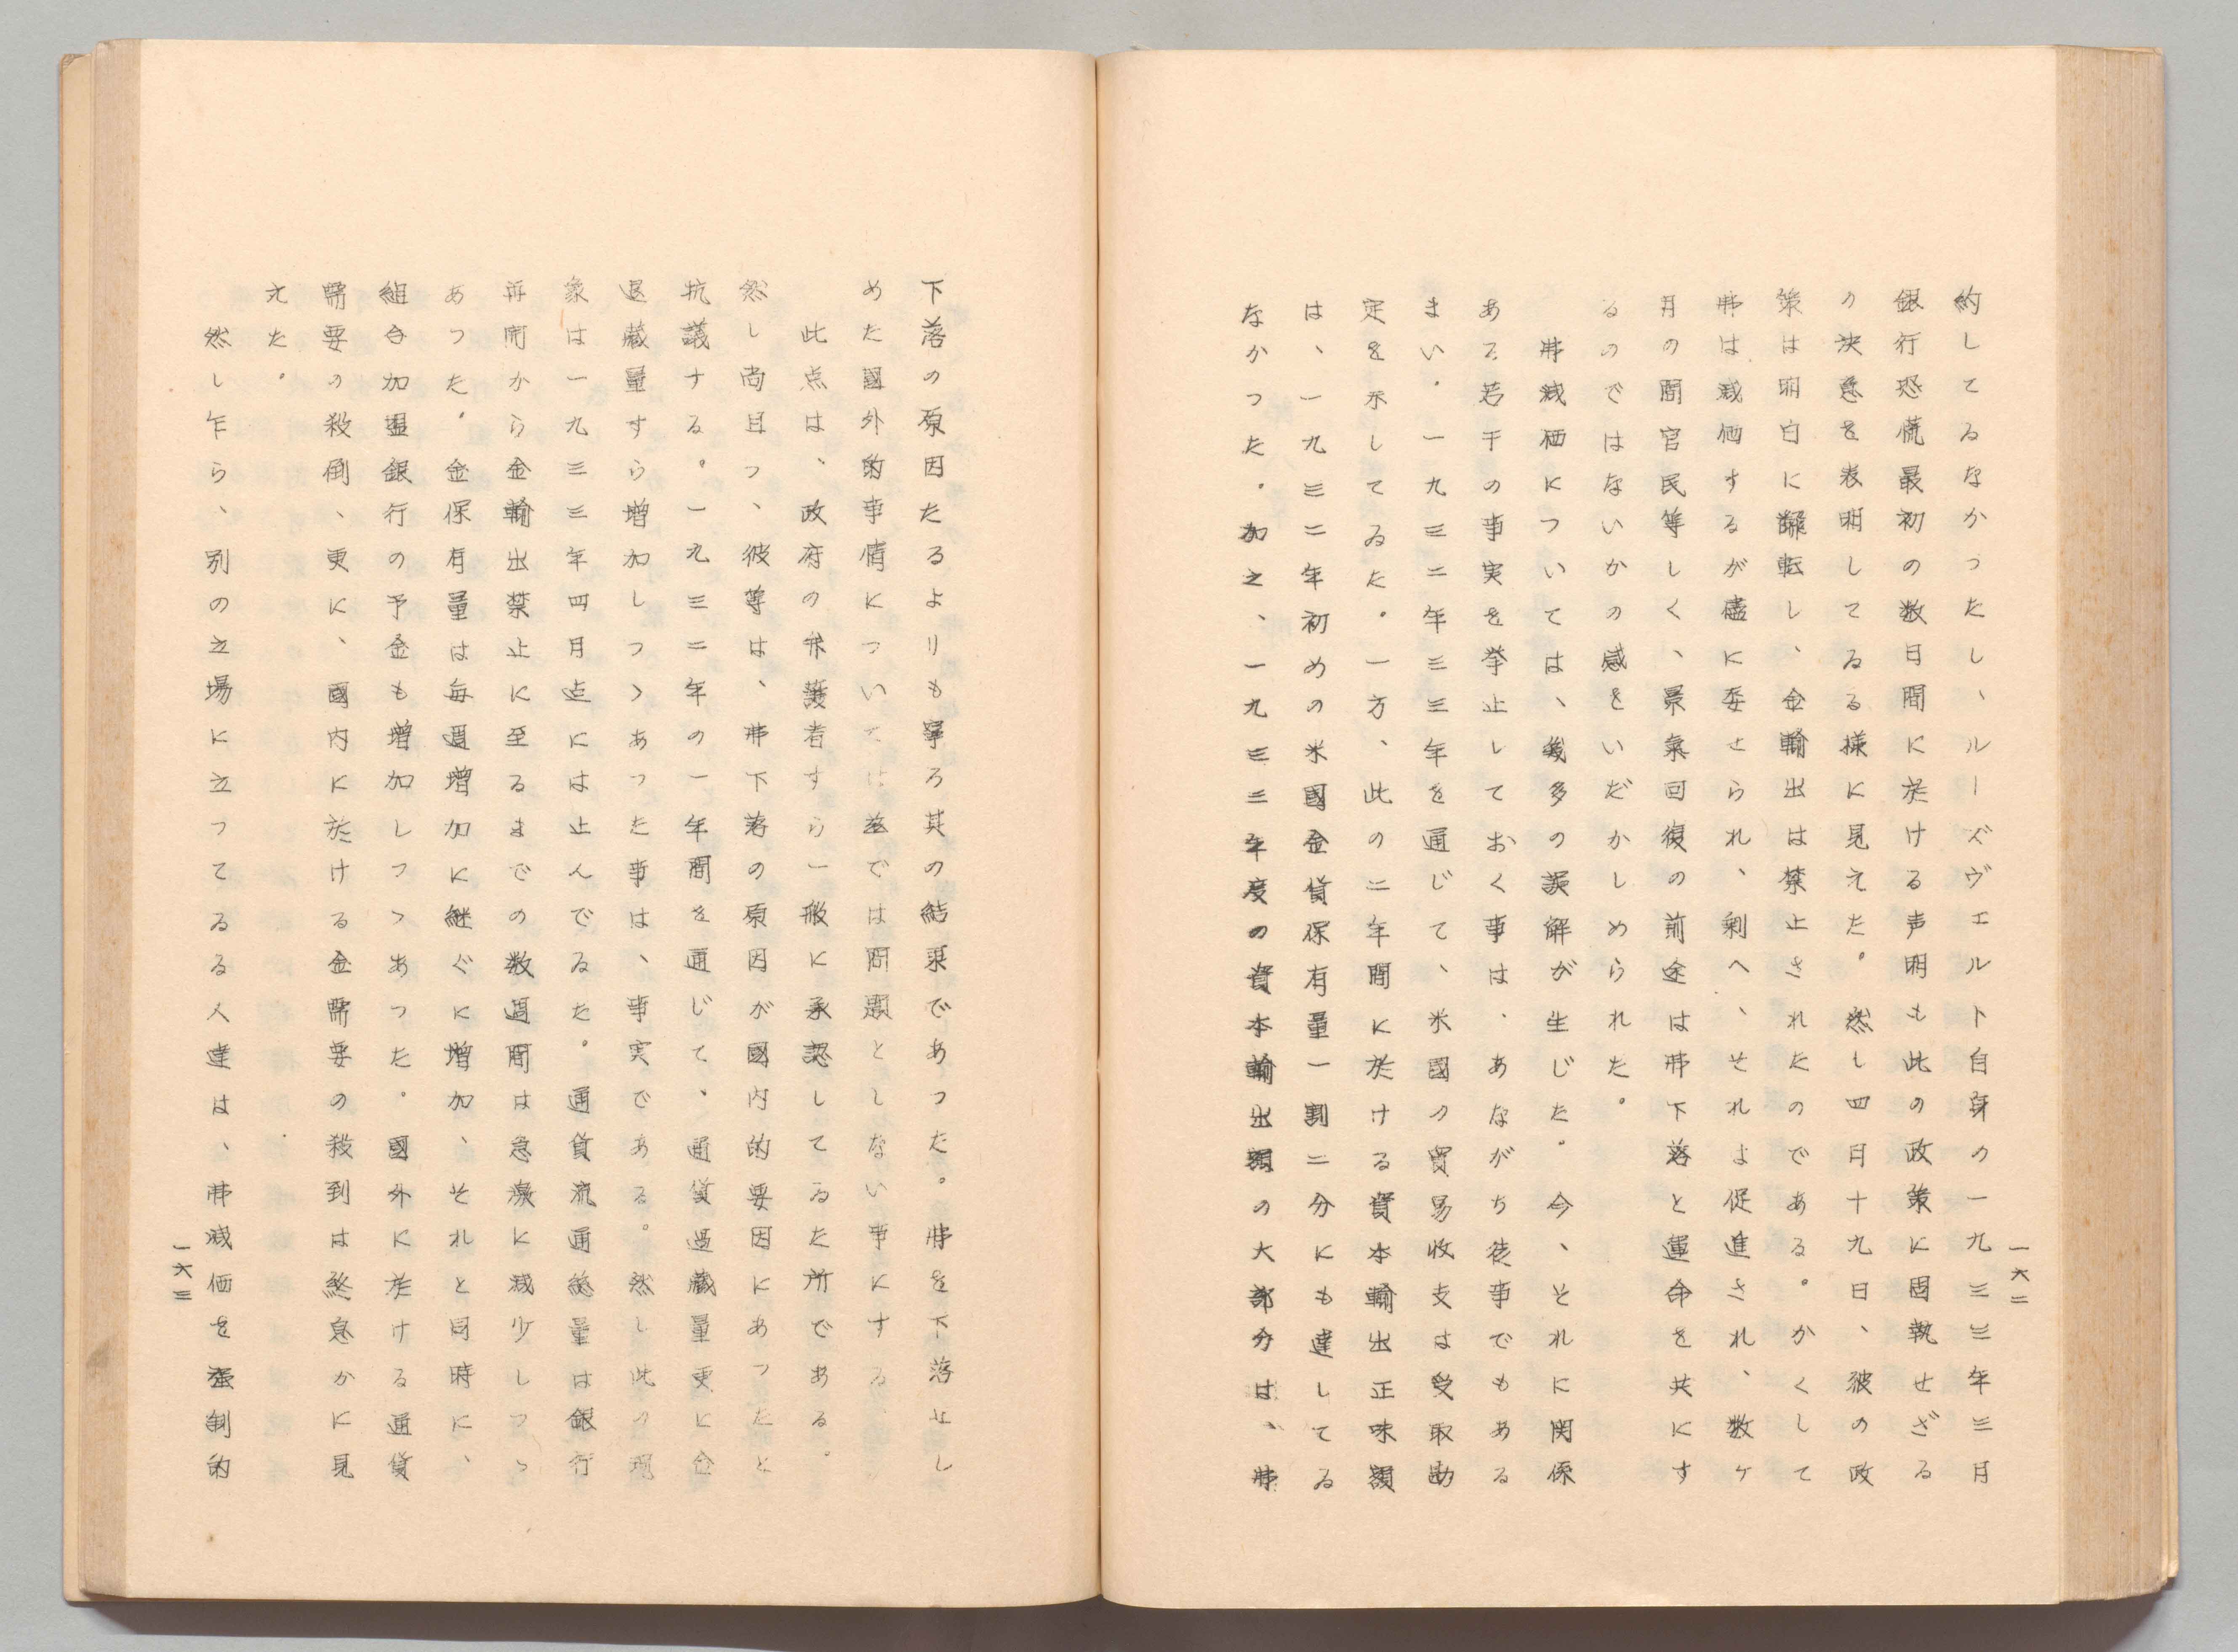 約してゐるなかったし、ルーズヴェルト自身の一九三三年三月
銀行恐慌最初の数日間に於ける声明も此の政策に固執せざる
の決意を表明してゐる様に見えた。然し四月十九日、彼の政
策は明白に飜転し、金輸出は禁止されたのである。かくして
弗は減価するが儘に委せられ、剰へ、それよ促進され、数ヶ
月の間官民等しく、景氣回復の前途は弗下落と運命を共にす
るのではないかの感をいだかしめられた。
弗減価については、幾多の誤解が生じた。今、それに関係
ある若干の事実を挙止しておく事は、あながち徒事でもある
まい。一九三二年三三年を通じて、米國の貿易收支は受取勘
定を示してゐた。一方、此の二年間に於ける資本輸出正味額
は、一九三二年初めの米國金貨保有量一割二分にも達してゐ
なかった。加之、一九三三年度の資本輸出額の大部分は、弗
一六二
下落の原因たるよりも寧ろ其の結果であった。弗を下落せし
めた國外的事情については茲では問題としない事にする。
此点は、政府の弁護者すら一般に承認してゐた所である。
然し尚且つ、彼等は、弗下落の原因が國内的要因にあったと
抗議する。一九三二年の一年間を通じて、通貨過藏量更に金
退藏量すら増加しつゝあった事は、事実である。然し此の現
象は一九三三年四月迄には止んでゐた。通貨流通総量は銀行
再開から金輸出禁止に至るまでの数週間は急激に減少しつゝ
あった。金保有量は毎週増加に継ぐに増加、それと同時に、
組合加盟銀行の予金も増加しつつあった。國外に於ける通貨
需要の殺倒、更に、國内に於ける金需要の殺到は終息かに見
えた。
然し乍ら、別の立場に立つてゐる人達は、弗減価を強制的
一六三